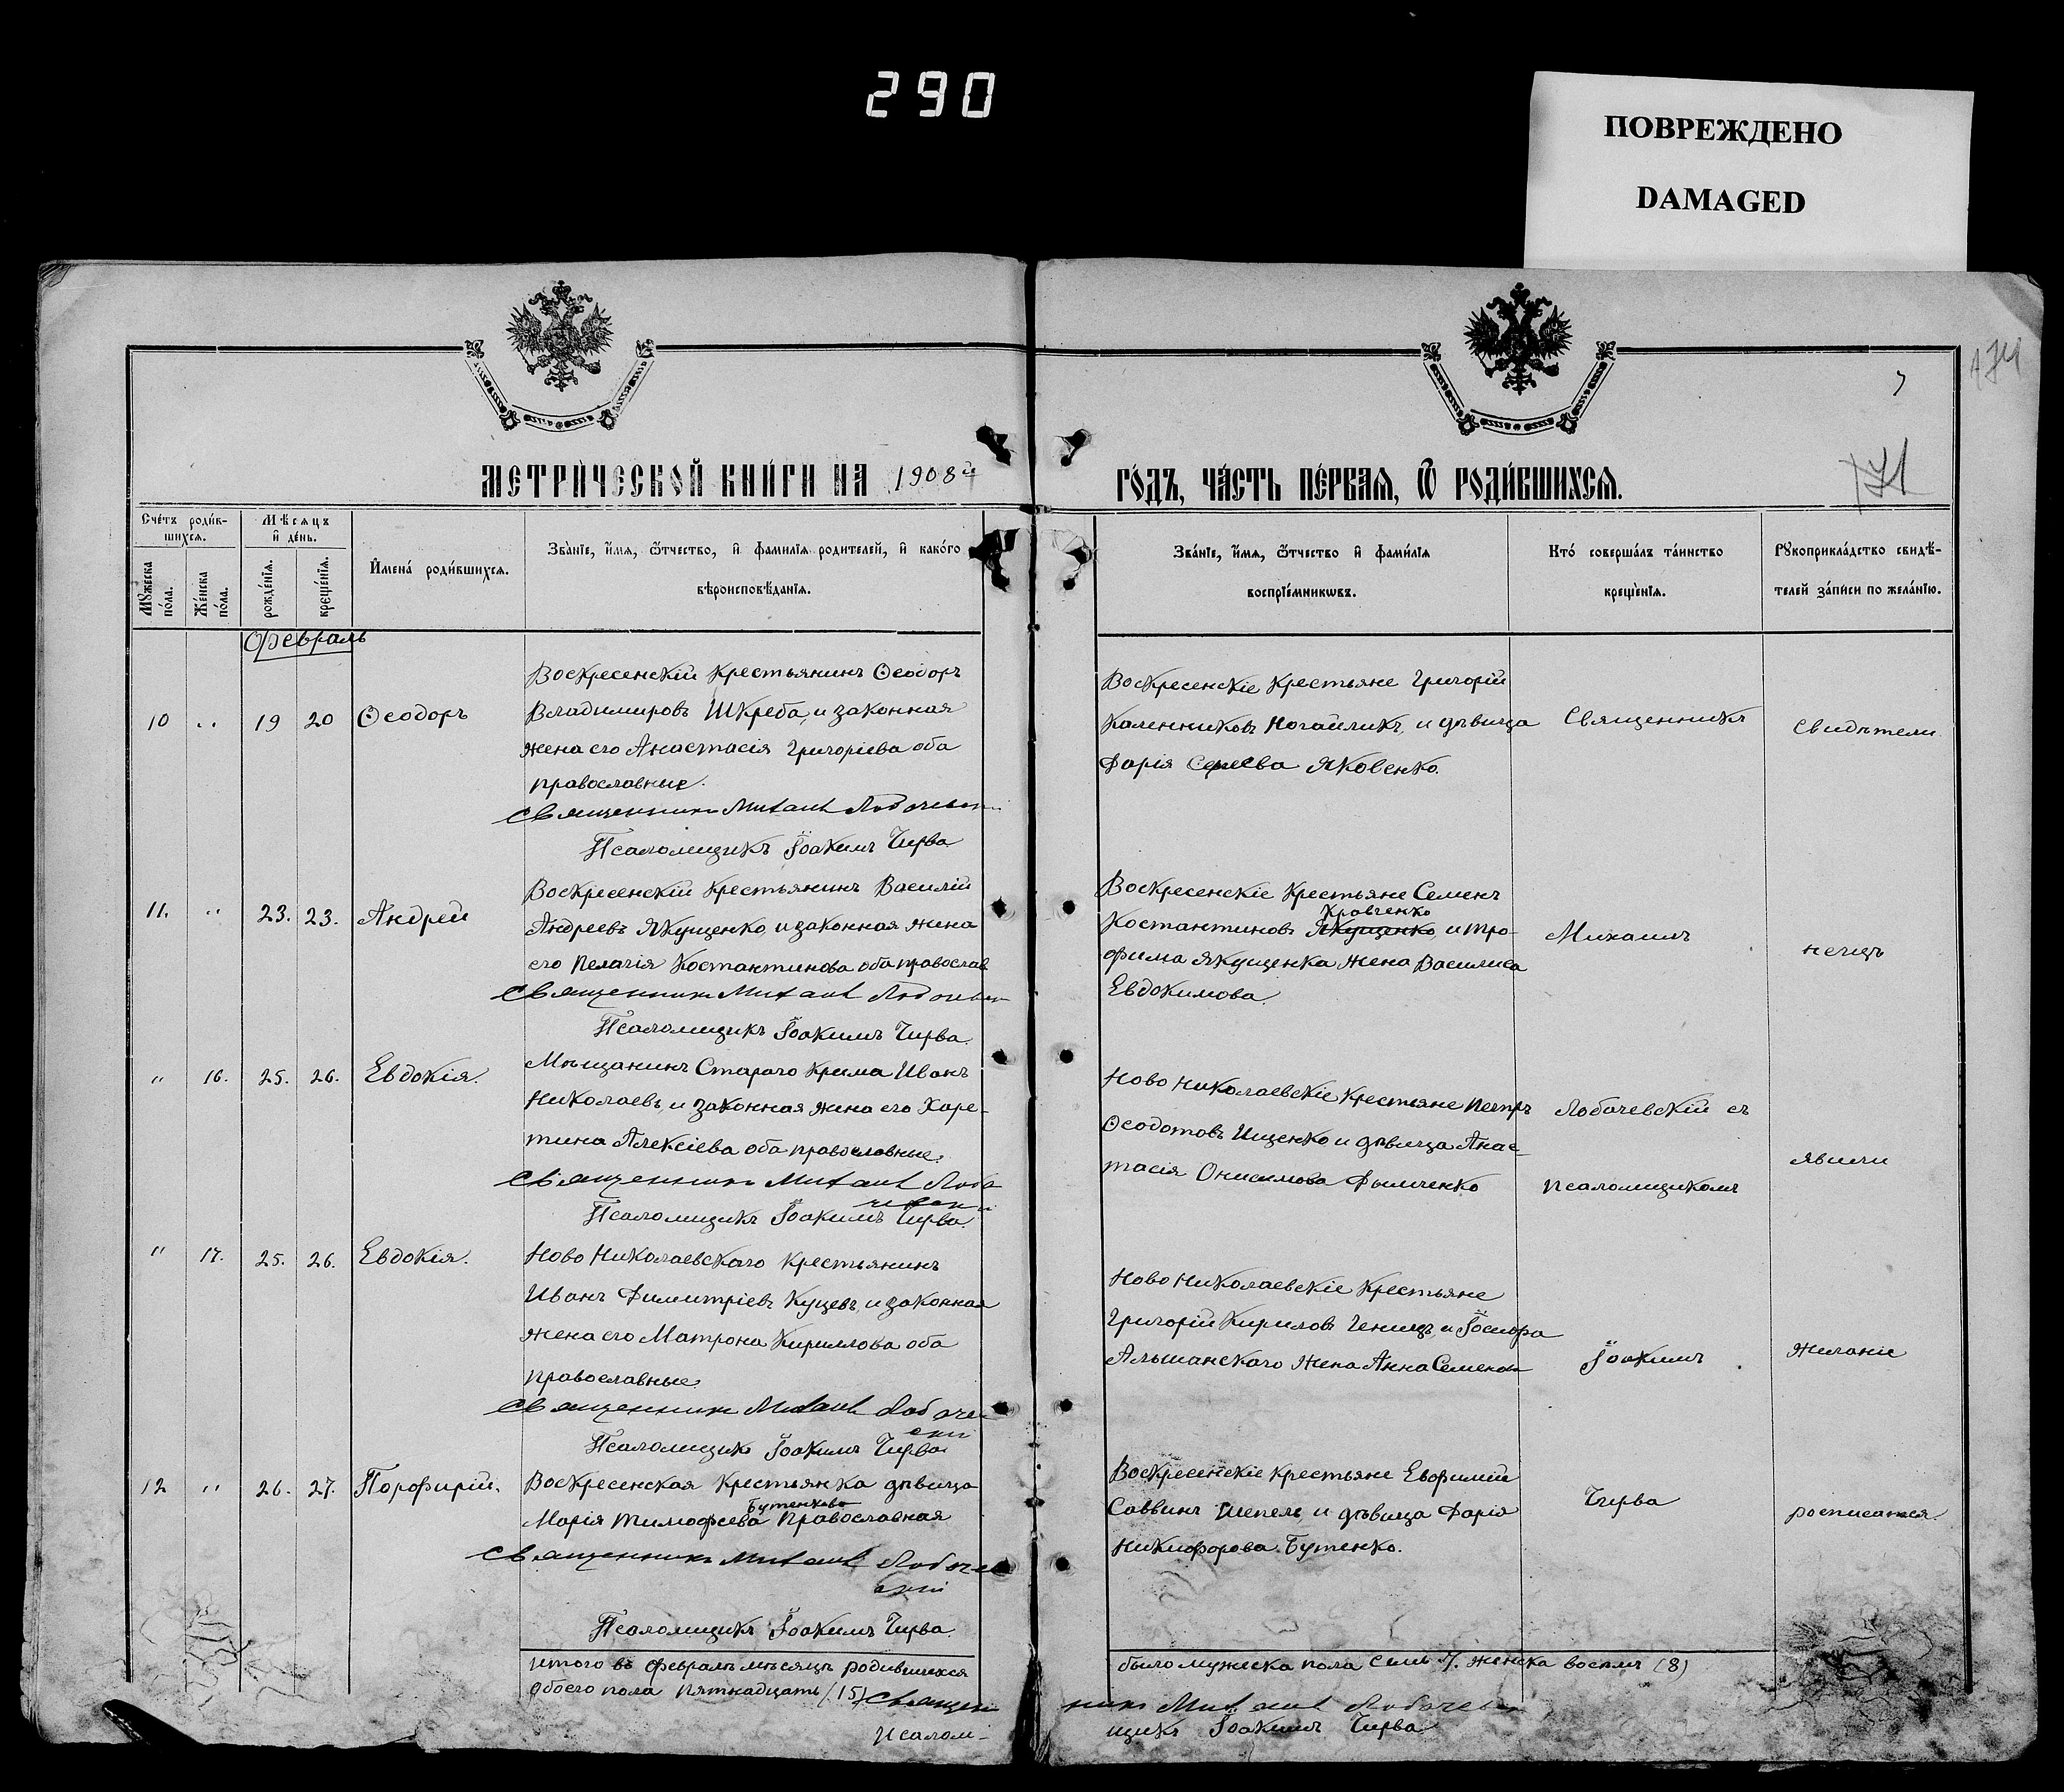 290
ПОВРЕЖДЕНО
DAMAGED
174
171
МЕТРИ́ЧЕСКОЙ КНИ́ГИ НА 1908й
ГО́ДЪ, ЧА́СТЬ ПЕ́РВАѦ, Ѿ РОДИ́ВШИХСѦ.
Сче́тъ роди́в-
шихсѧ.
Мѣ́сѧцъ
и҆ де́нь.
Мꙋ́жеска
по́ла.
Же́нска
по́ла.
рожде́нїѧ.
креще́нїѧ.
И҆мена́ роди́вшихсѧ.
Зва́нїе, и҆́мѧ, ѻ҆́тчество, и҆ фами́лїѧ роди́телей, и҆ како́го
вѣроисповѣ́данїѧ.
Зва́нїе, и҆́мѧ, ѻ҆́тчество и҆ фами́лїѧ
воспрїе́мникѡвъ.
Кто̀ соверша́лъ та́инство
креще́нїѧ.
Рꙋкоприкла́дство свидѣ́-
телей за́писи по жела́нїю.
Февраль
10 " 19 20 Ѳеодоръ
Воскресенскій Крестьянинъ Ѳеодоръ
Владимировъ Шкреба, и законная
жена его Анастасія Григоріева оба
православные.
Священникъ Михаилъ Лобачевскій
Псаломщикъ Іоакимъ Чирва
Воскресенскіе Крестьяне Григорій
Каленниковъ Ногайликъ, и дѣвица
Дарія Яковенко.
Священникъ
Свидѣтели
11. " 23. 23. Андрей
Воскресенскій Крестьянинъ Василій
Андреевъ Якущенко, и законная жена
его Пелагія Костантинова оба православ
Священникъ Михаилъ Лобачевскій
Псаломщикъ Іоакимъ Чирва.
Воскресенскіе Крестьяне Семенъ
Кравченко
Костантиновъ Якущенко, и Тро-
фима Якущенка жена Василиса
Евдокимова.
Михаилъ
" 16. 25. 26. Евдокія.
Мѣщанинъ Стараго Крыма Иванъ
Николаевъ, и законная жена его Харе-
тина Алексіева оба православные.
Священникъ Михаилъ Лоба
чевскій
Псаломщикъ Іоакимъ Чирва.
Ново Николаевскіе Крестьяне Петръ
Ѳеодотовъ Ищенко и дѣвица Анас-
тасія Онисимова Дымченко
Лобачевскій съ
Псаломщикомъ
явили
" 17. 25. 26. Евдокія.
Ново Николаевскаго Крестьянинъ
Иванъ Димитріевъ Куцевъ, и законная
жена его Матрона Кириллова оба
православные.
Священникъ Михаилъ Лобачев
скій
Псаломщикъ Іоакимъ Чирва
Ново Николаевскіе Крестьяне
Григорій Кириловъ и Іосифа
Альшанскаго жена Анна Семенова
Іоакимъ
желаніе
12 " 26. 27. Порфирій.
Воскресенская Крестьянка дѣвица
Бутенкова
Марія Тимофеева Православная
Священникъ Михаилъ Лобачев
скій
Псаломщикъ Іоакимъ Чирва
Воскресенскіе Крестьяне Евфимій
Саввинъ Шепель, и дѣвица Дарія
Никифорова Бутенко.
Чирва
росписатся.
Итого въ Февралѣ мѣсяцѣ родившихся
обоего пола пятнадцать (15) Священ
Псалом-
было мужеска пола семь 7. женска восемь (8)
никъ Михаилъ Лобачевскій
щикъ Іоакимъ Чирва